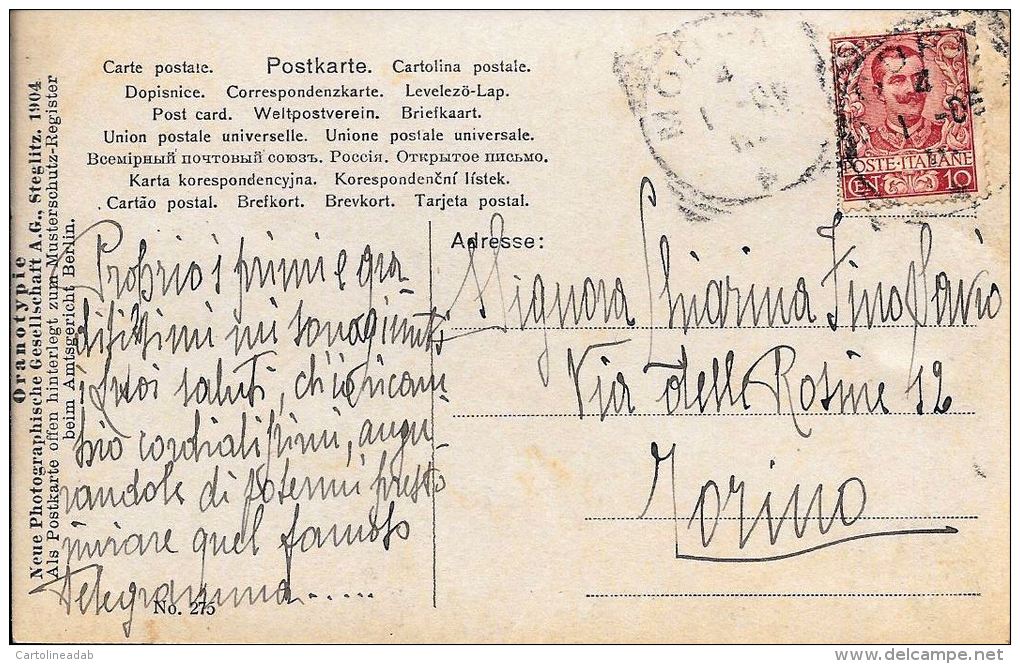 Carte postale. Postkarte. Cartolina postale.
Dopisnice. Correspondenzkarte. Levelező-Lap.
Post card. Weltpostverein. Briefkaart.
Union postale universelle. Unione postale universale.
Всемірный почтовый союзъ. Россія. Открытое письмо.
Karta korespondencyjna. Korespondenční lístek.
Cartão postal. Brefkort. Brevkort. Tarjeta postal.
POSTE·ITALIANE
CEN 10
Oranotypie
Neue Photographische Gesellschaft A.G., Steglitz. 1904
Als Postkarte offen hinterlegt zum Musterschutz-Register
beim Amtsgericht Berlin.
Proprio i primi e gra
ditissimi mi sono giunti
i suoi saluti, che ricam
bio cordialissimi, augu-
randole di potermi presto
inviare quel famoso
telegramma.....
No. 275
Adresse:
Signora Chiarina Fino
Via delle Rosine 12
Torino
Cartolineadab
delcampe.net